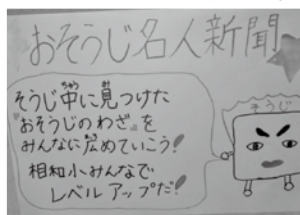 おそうじ名人新聞
そうじ中に見つけた
『おそうじのわざ』を
みんなに広めていこう!
相知小みんなで
レベルアップだ!
そうじ